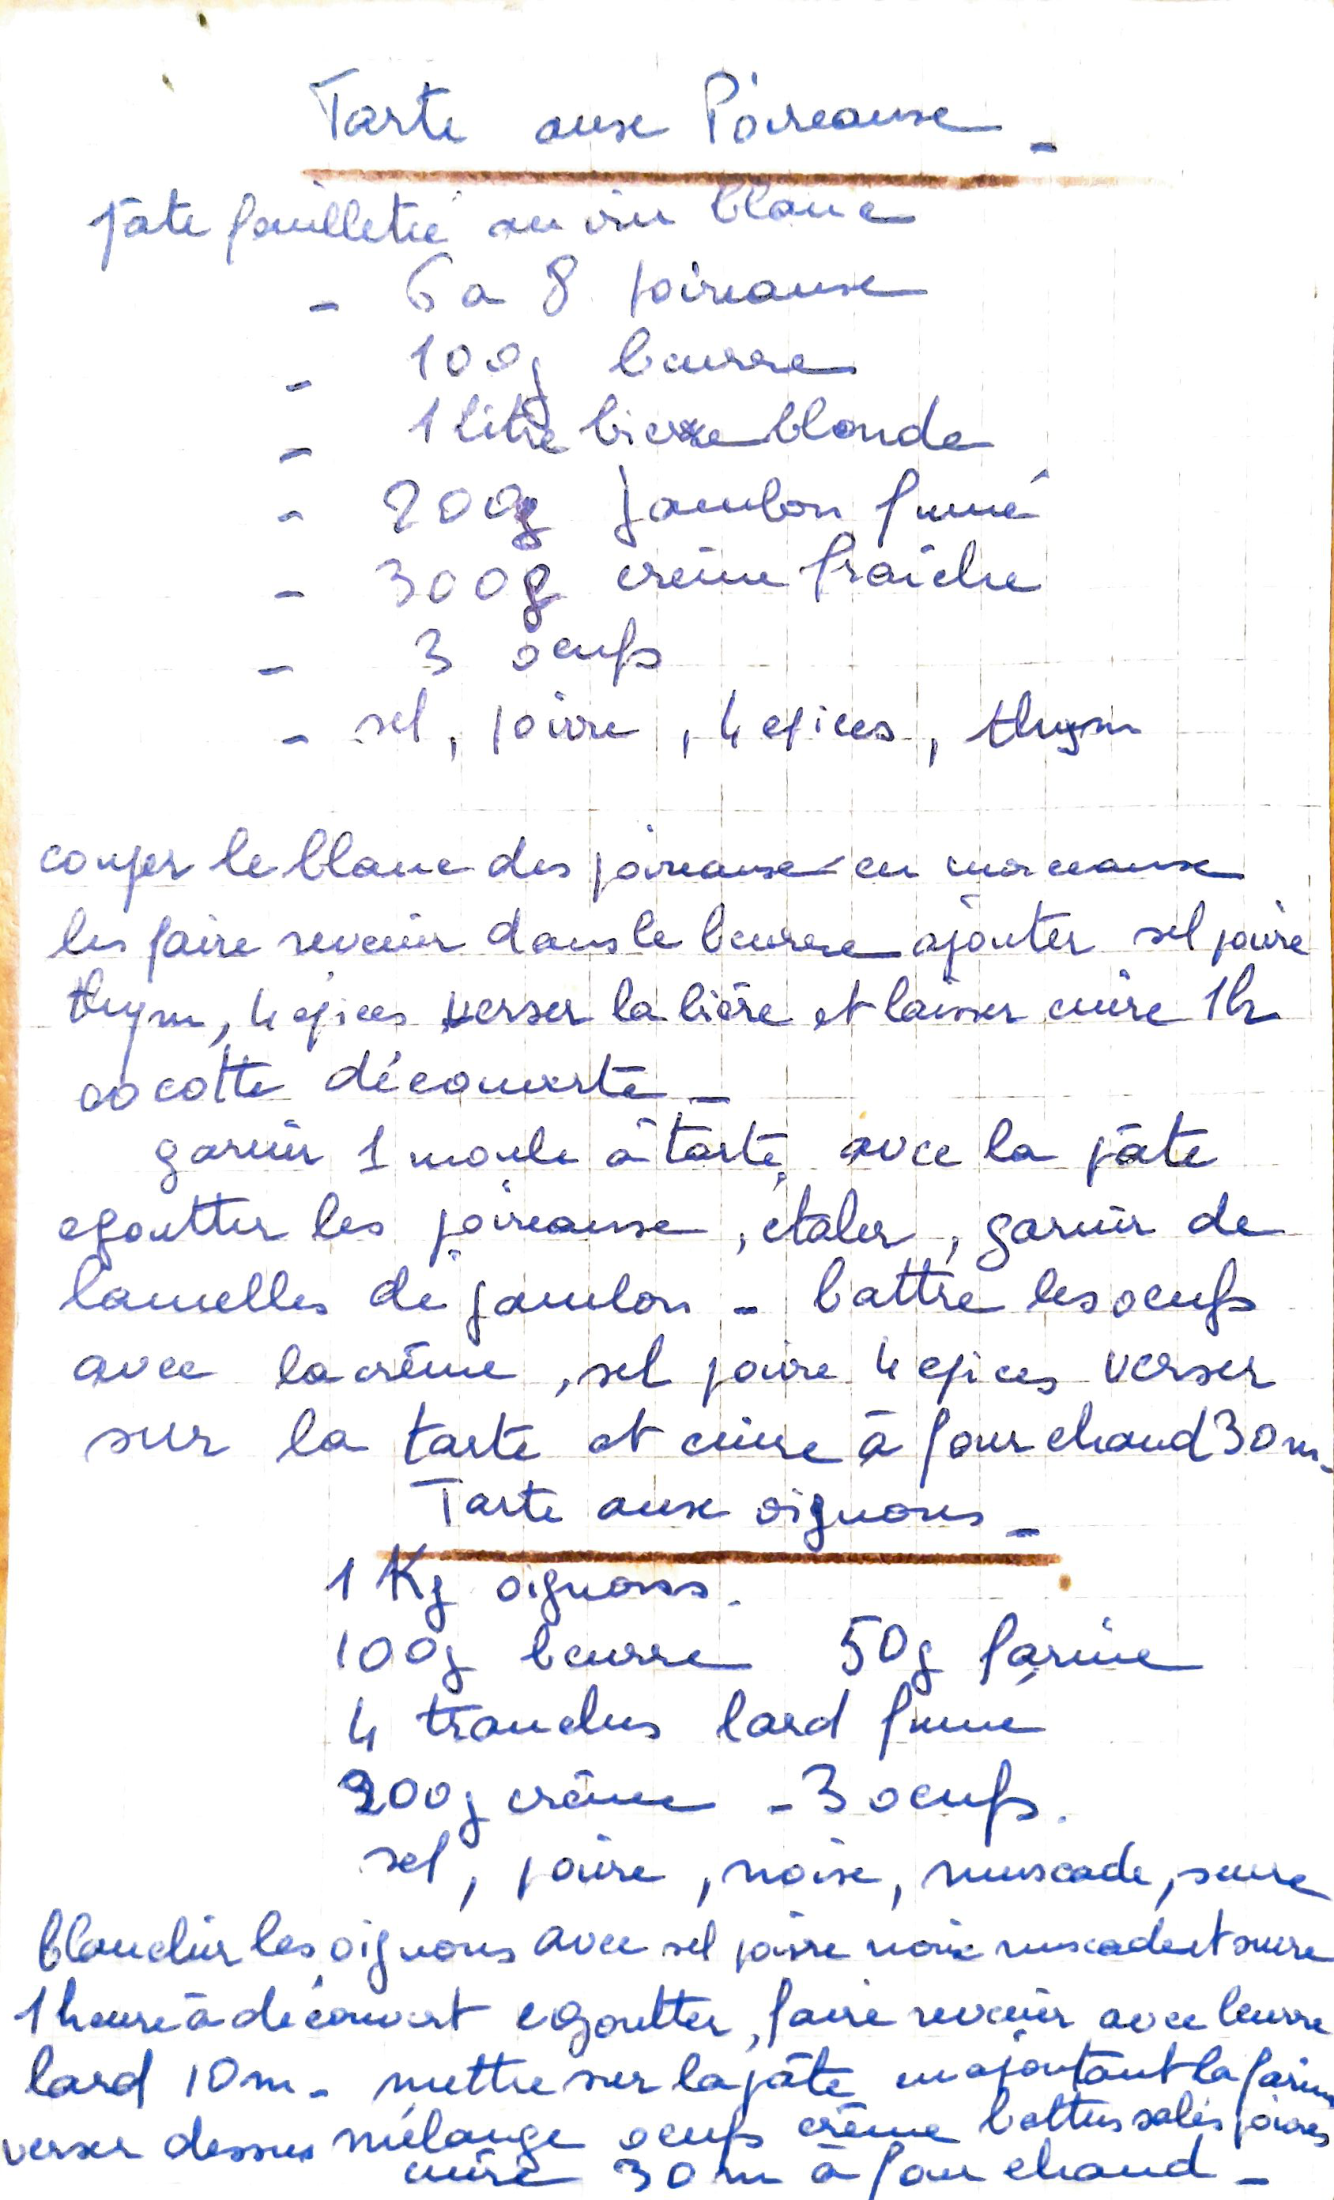 Tarte aux Poireaux -
pâte feuilletée au vin blanc
- 6 a 8 poireaux
- 100g beurre
- 1 litre biere blonde
- 200g jambon fumé
- 300g crème fraiche
- 3 oeufs
- sel, poivre, 4 epices, thym
couper le blanc des poireaux en morceaux
les faire revenir dans le beurre ajouter sel poivre
thym, 4 epices verser la bière et laisser cuire 1h
cocotte découverte -
garnir 1 moule à tarte avec la pâte
egoutter les poireaux, étaler, garnir de
lamelles de jambon - battre les oeufs
avec la crème, sel poivre 4 epices verser
sur la tarte et cuire à four chaud 30m.
Tarte aux oignons -
1 Kg oignons.
100g beurre 50g farine
4 tranches lard fumé
crème - 3 oeufs.
sel, poivre, noix, muscade, sucre
blanchir les oignons avec sel poivre noix muscade et sucre
1 heure à découvert egoutter, faire revenir avec beurre
lard 10m - mettre sur la pâte en ajoutant la farine
verser dessus mélange oeufs crème battus salés poivrés
cuire 30m à four chaud -